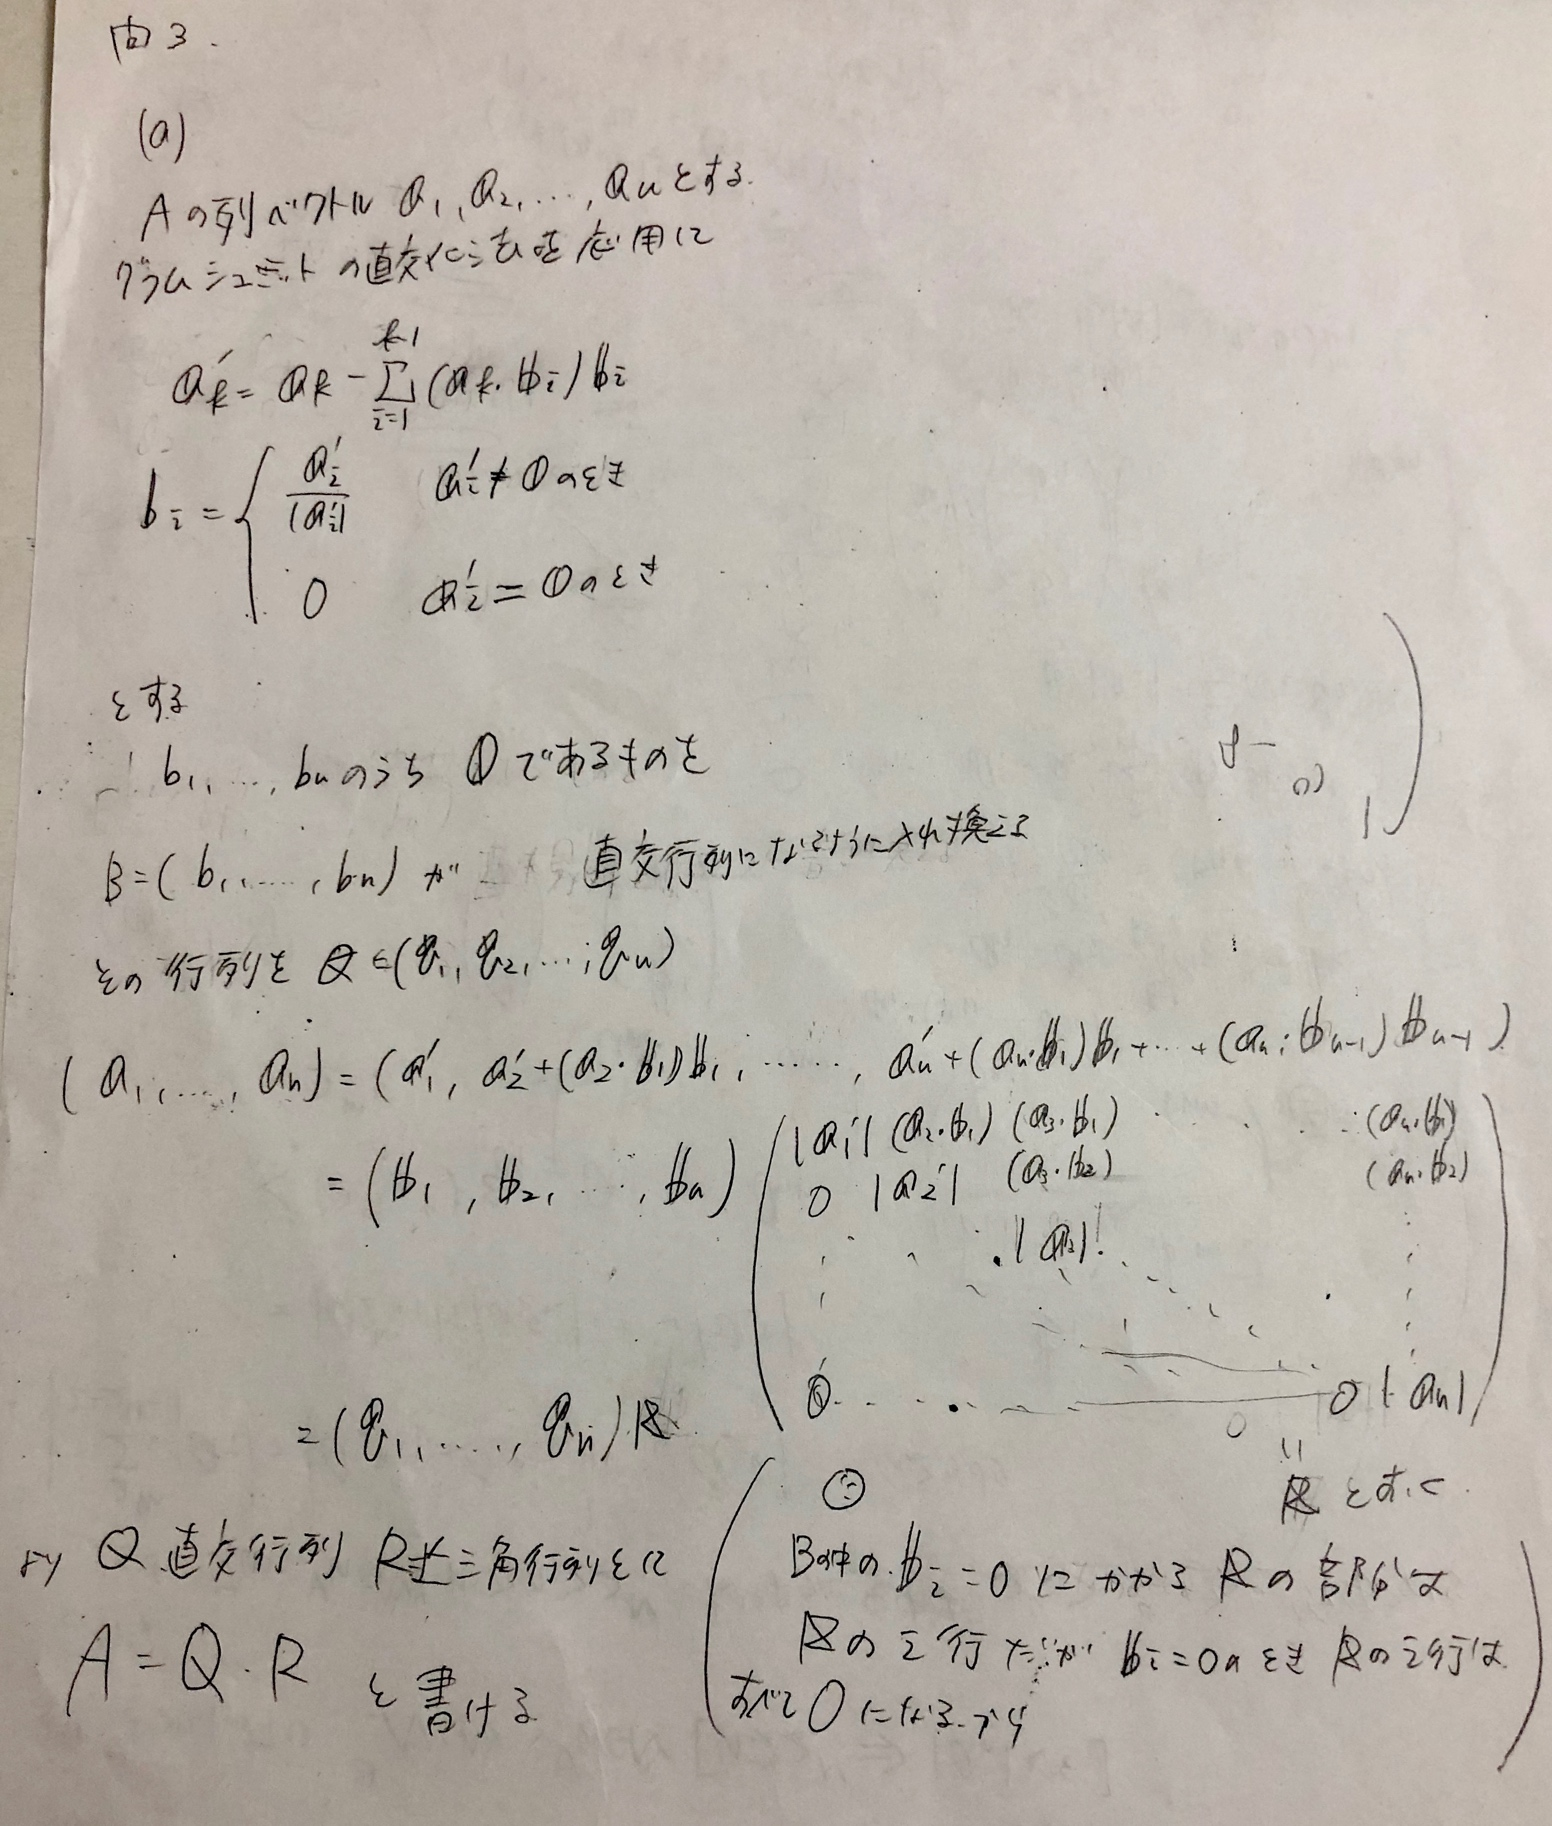 問3.
(a)
Aの列ベクトル a₁, a₂, …, aₙとする.
グラムシュミットの直交化法を応用して
a'ₖ = aₖ − Σ_{i=1}^{k-1} (aₖ・bᵢ) bᵢ
bᵢ = { a'ᵢ / |a'ᵢ|  a'ᵢ ≠ 0 のとき
0  a'ᵢ = 0 のとき
とする
b₁, …, bₙのうち 0 であるものを
B = (b₁, …, bₙ) が 直交行列になるように入れ換える
その行列を Q = (q₁, q₂, …, qₙ)
(a₁, …, aₙ) = (a'₁, a'₂ + (a₂・b₁)b₁, ……, a'ₙ + (aₙ・b₁)b₁ + … + (aₙ・bₙ₋₁)bₙ₋₁)
= (b₁, b₂, …, bₙ) ( |a'₁| (a₂・b₁) (a₃・b₁) … (aₙ・b₁)
0 |a'₂| (a₃・b₂) (aₙ・b₂)
|a'₃|
0 … 0 |aₙ| )
= (q₁, …, qₙ) R
R とおく.
より Q 直交行列 R上三角行列として
A = Q・R と書ける
( ∵
B の中の bᵢ = 0 にかかる R の部分は
R の i 行 だが bᵢ = 0 のとき R の i 行は
すべて 0 になるから )